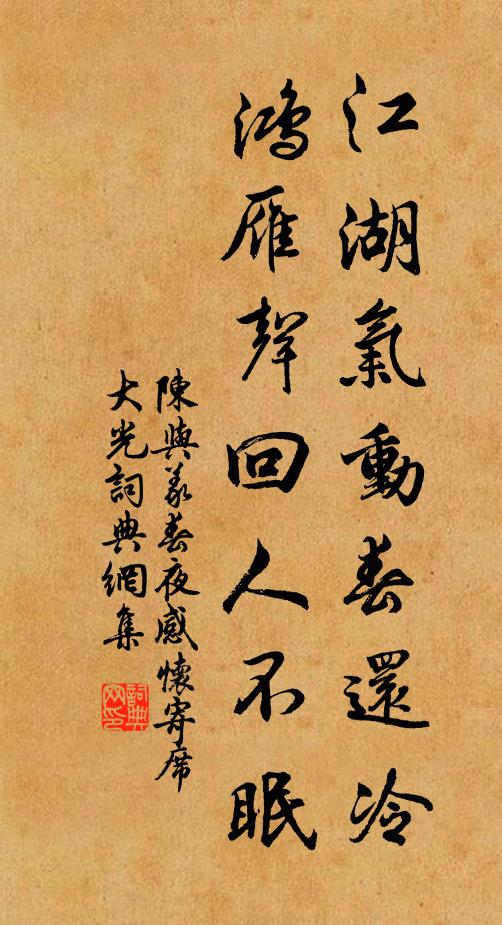 江湖氣動春還冷
鴻雁聲回人不眠
陳與義春夜感懷寄席
大光詞典網集
詞典
网印